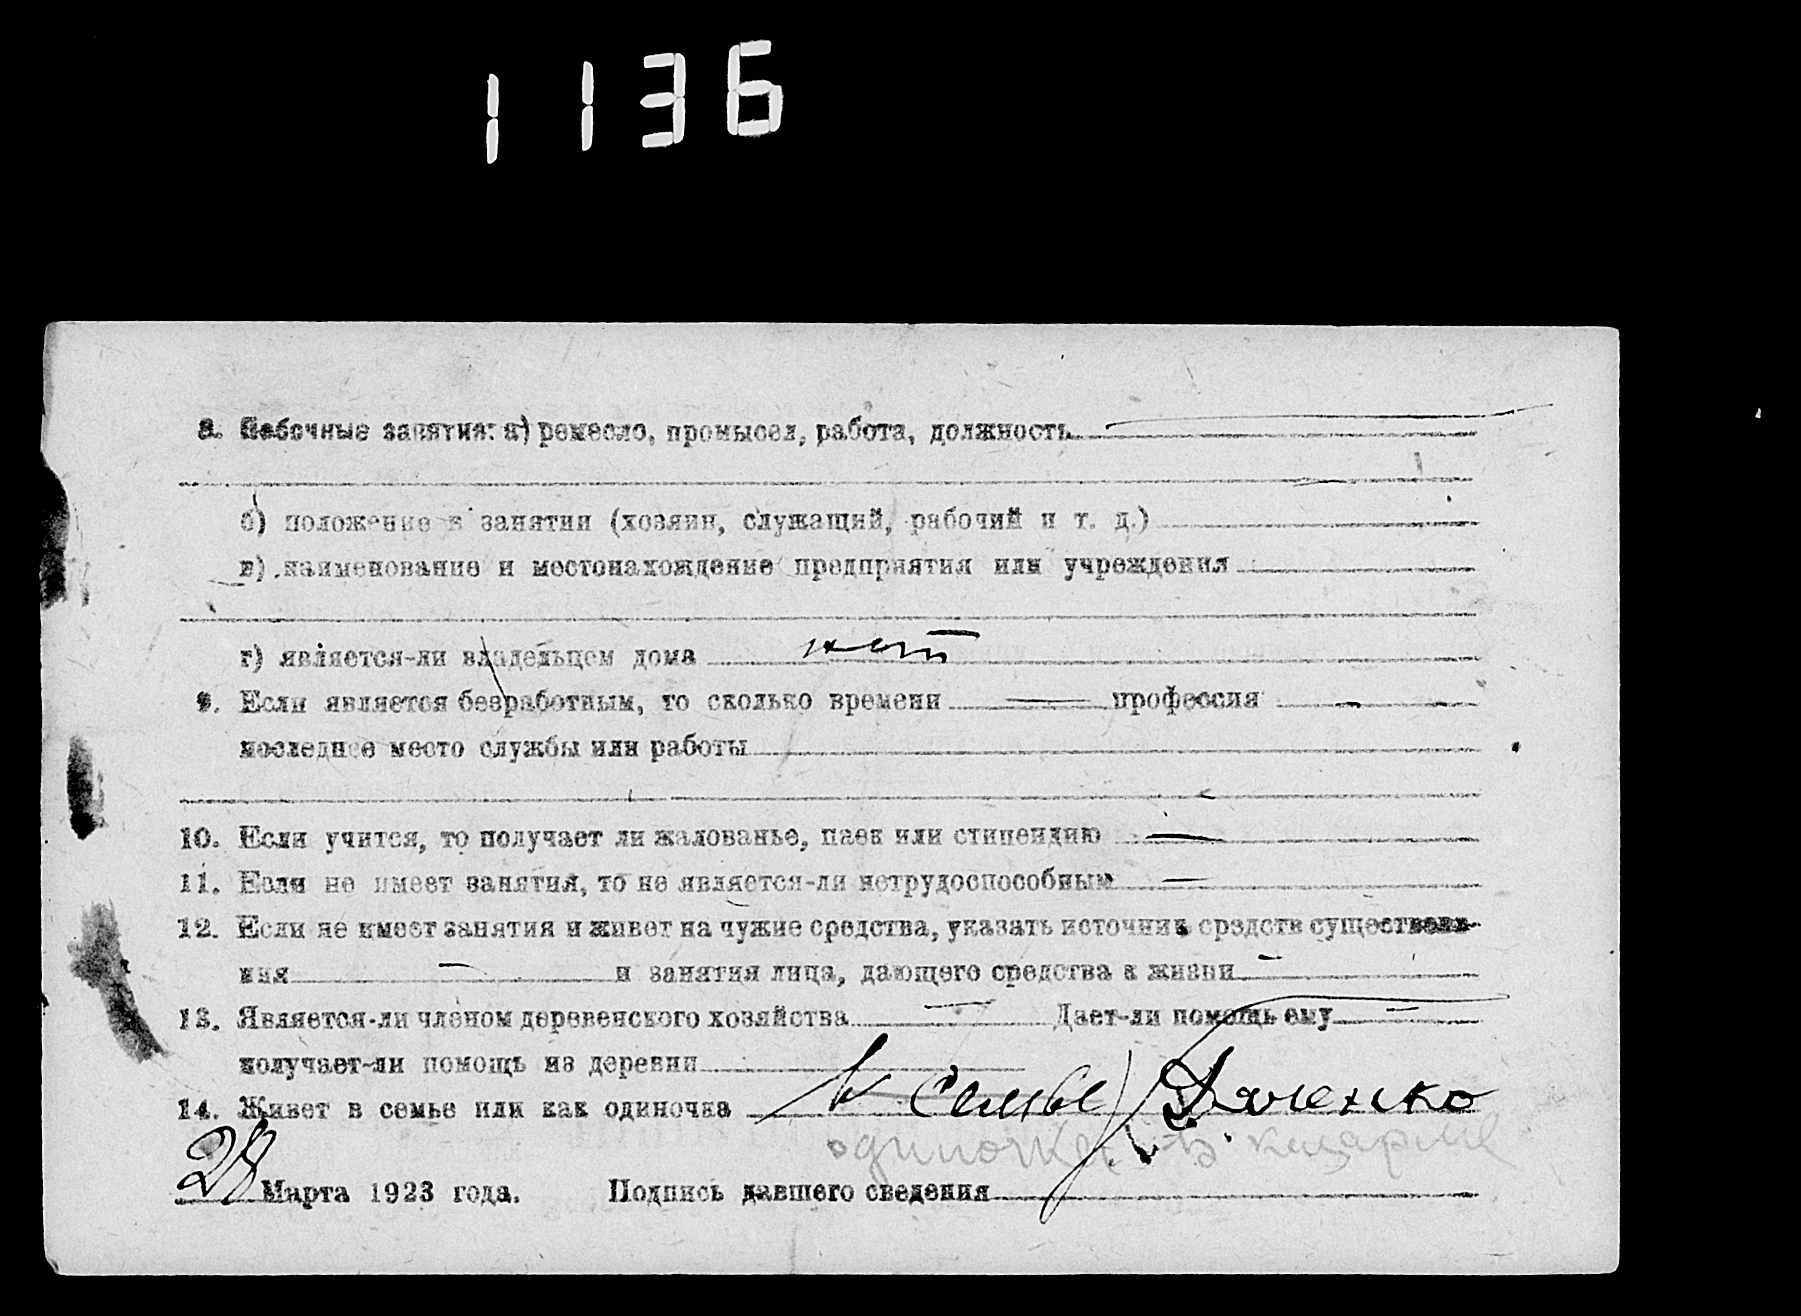 1136
8. Побочные занятия: а) ремесло, промысел, работа, должность
б) положение в занятии (хозяин, служащий, рабочий и т. д.)
в) наименование и местонахождение предприятия или учреждения
г) является-ли владельцем дома нет
9. Если является безработным, то сколько времени — профессия - -
последнее место службы или работы
10. Если учится, то получает ли жалованье, паек или стипендию —
11. Если не имеет занятия, то не является-ли нетрудоспособным —
12. Если не имеет занятия и живет на чужие средства, указать источник средств существова-
ния — и занятия лица, дающего средства к жизни -
13. Является-ли членом деревенского хозяйства — Дает-ли помощь ему —
получает-ли помощь из деревни
14. Живет в семье или как одиночка в семье
одиночка в казарме
28 Марта 1923 года. Подпись давшего сведения